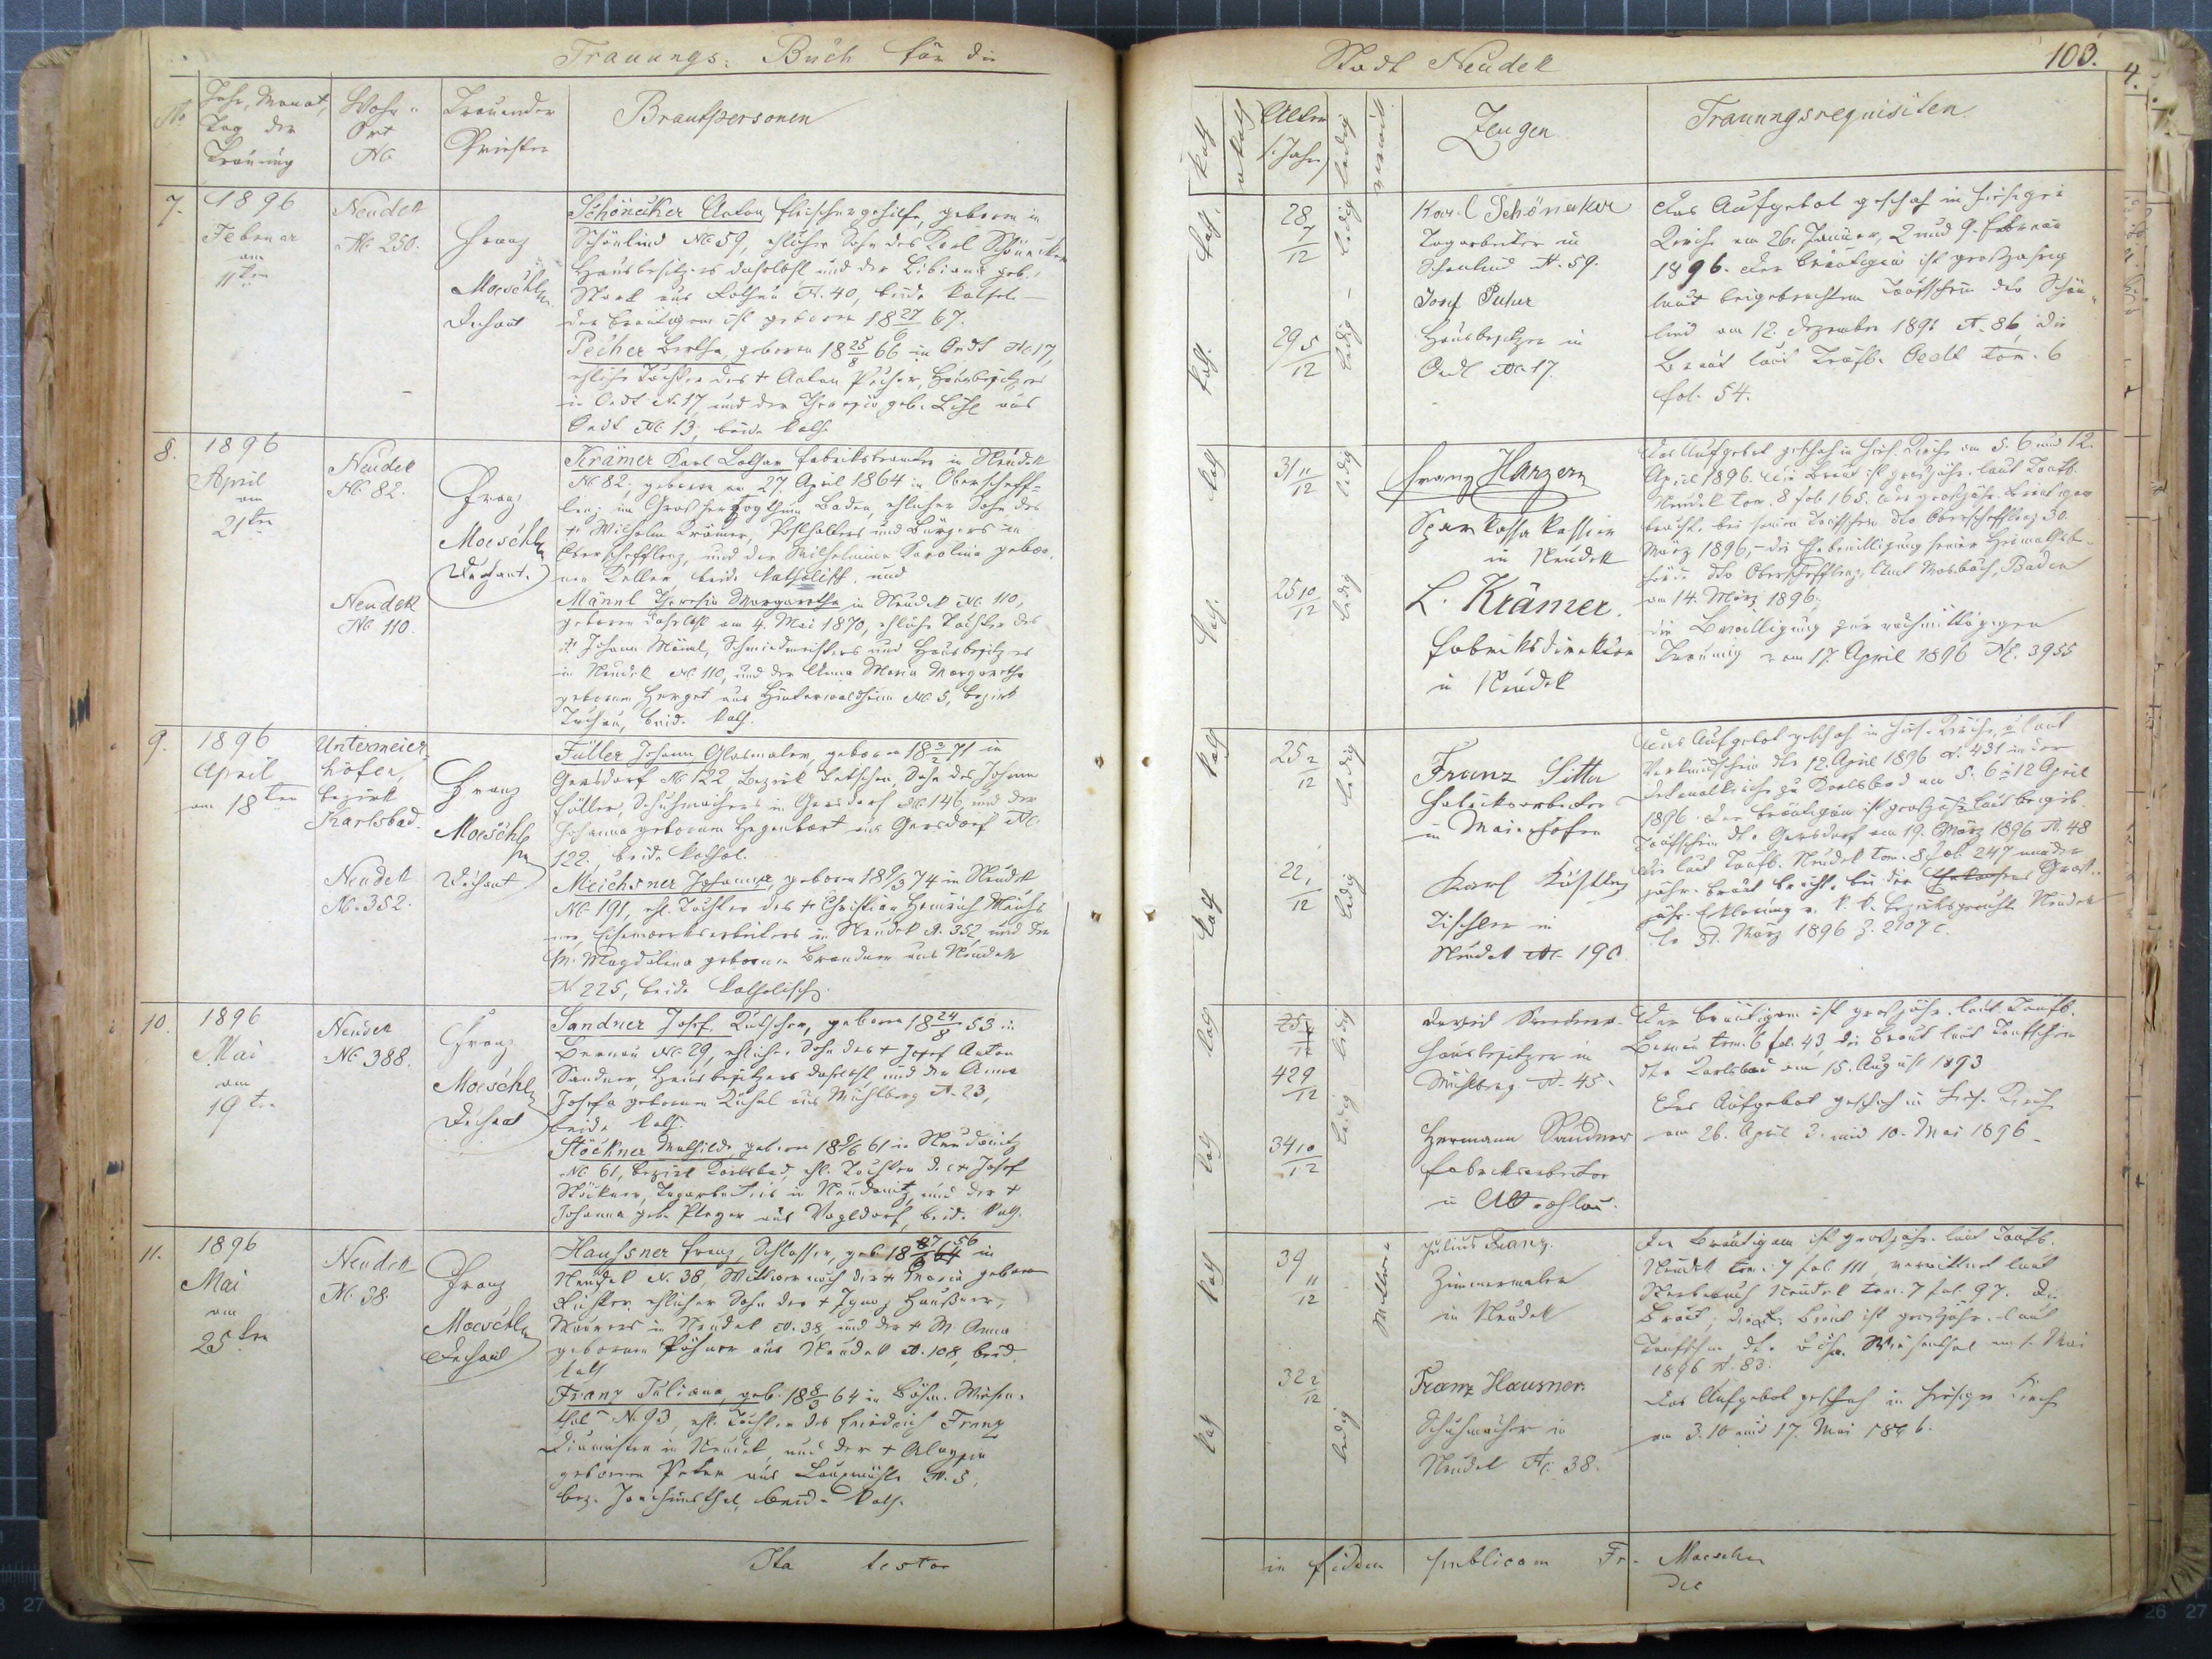 Trauungs: Buch für die
No
Jahr, Monat,
Tag der
Trauung
Wohn-
Ort
No
Trauender
Priester
Brautpersonen
7.
1896
Februar
am
11ten
Neudek
No 250.
Franz
Moeschl
Dechant
Schönecker Anton, Fleischergehilfe, geboren in
Schönlind No 59, ehlicher Sohn des Karl Schönecker
Hausbesitzers daselbst und der Bibiana geb.
aus No. 40, beide kathol.
der Bräutigam ist geboren 18 27/6 67.
Pecher Bertha, geboren 18 25/8 66 in Oedt No 17,
ehliche Tochter des + Anton Pecher, Hausbesitzers
in Oedt No 17 und der Theresia geb. aus
Oedt No 13, beide kath.
8.
1896
April
am
21ten
Neudek
No 82.
Neudek
No 110.
Franz
Moeschl
Dechant
Krämer Karl Lothar Fabriksbeamter in Neudek
No 82. geboren am 27. April 1864 in Oberscheff-
lenz im Großherzogthum Baden, ehlicher Sohn des
+ Wilhelm Krämer, Posthalters und Bürgers in
Oberschefflenz, und der Wilhelmine Karolina gebor-
nen Keller, beide katholisch, und
Männl Theresia Margaretha in Neudek No 110,
geboren daselbst am 4. Mai 1870, ehliche Tochter des
+ Johann Männl, Schmiedmeisters und Hausbesitzers
in Neudek No 110, und der Anna Maria Margaretha
gebornen Herget aus No 5, Bezirk
Tachau, beide kath.
9.
1896
April
am 18ten
Untermeier-
höfen,
Bezirk
Karlsbad.
Neudek
No. 352.
Franz
Moeschl
Dechant
Füller Johann Glasmaler, geboren 18 2/2 71 in
Gersdorf No 122 Bezirk Tetschen, Sohn des Johann
Füller, Schuhmachers in Gersdorf No 146, und der
Johanna gebornen Hegenbart aus Gersdorf No
122, beide kathol.
Meichsner Johanna, geboren 18 9/3 74 in Neudek
No 191, ehl. Tochter des + Christian Heinrich Meichs-
ner, Eisenwerksarbeiters in Neudek No. 352 und der
M. Magdalena gebornen Brandner aus Neudek
No 225, beide katholisch.
10.
1896
Mai
am
19ten
Neudek
No 388.
Franz
Moeschl
Dechant
Sandner Josef, Kutscher, geboren 18 24/8 53 in
Bernau No 29, ehlicher Sohn des + Josef Anton
Sandner, Hausbesitzers daselbst und der Anna
Josefa gebornen aus Mühlberg No. 23,
beide kath.
Stöckner Mathilde, geboren 18 9/6 61 in Neudanitz
No. 61, Bezirk Karlsbad, ehl. Tochter des + Josef
Stöckner, Tagarbeiters in Neudanitz, und der +
Johanna geb. Pleyer aus Vogldorf, beide kath.
11.
1896
Mai
am
25ten
Neudek
No. 38.
Franz
Moeschl
Dechant
Haussner Franz, Schlosser, geb. 18 56 in
Neudek No. 38, Witwer nach der + Maria geborn
ehlicher Sohn des + Ignaz Haußner,
Maurers in Neudek No. 38, und der + M. Anna
gebornen Pöhner aus Neudek No. 108, beide
kath
Franz Juliana, geb. 18 8/3 64 in Böhm. Wiesen-
thal No. 93, ehl. Tochter des Friedrich Franz
in Neudek, und der + Aloysia
gebornen Peter aus No. 5,
Bez. Joachimsthal, beide kath.
Ita testor
Stadt Neudek
103.
kath
akath
Alter
s. Jahre
ledig
verwitt
Zeugen
Trauungsrequisiten
kath.
28 7/12
ledig
Karl Schönecker
Tagarbeiter in
Schönlind No. 59.
Das Aufgebot geschah in hiesiger
Kirche am 26. Januar, 2 und 9. Februar
1896. Der Bräutigam ist großjährig
laut beigebrachtem Taufschein dto Schön-
lind am 12. Dezember 1891 No. 86, die
Braut laut Taufb. Oedt tom. 6
fol. 54.
kath.
29 5/12
ledig
Josef Pecher
Hausbesitzer in
Oedt No 17.
kath
31 11/12
ledig
Franz Hargers
Sparkassa Kassier
in Neudek
Das Aufgebot geschah in hies. Kirche am 5. 6 und 12.
April 1896. Die Braut ist großjähr. laut Taufb.
Neudek tom. 8 fol. 165. Der großjähr. Bräutigam
brachte bei seinen Taufschein dto Oberschefflenz 30.
März 1896, die Ehebewilligung seiner Heimathsbe-
hörde dto Oberschefflenz, Amt Mosbach, Baden
am 14. März 1896.
die Bewilligung zur nachmittägigen
Trauung vom 17. April 1896 No. 3955
kath.
25 10/12
ledig
L. Krämer.
Fabriksdirektor
in Neudek
kath
25 2/12
ledig
Franz Sitter
Fabriksarbeiter
in Maierhöfen
Das Aufgebot geschah in hies. Kirche, u laut
Verkündschein dto 12. April 1896 No. 431 in der
Dekanalkirche zu Karlsbad am 5. 6 u 12 April
1896. Der Bräutigam ist großjähr. laut beigeb.
Taufschein dto Gersdorf am 19. März 1896 No. 48
die laut Taufb. Neudek tom. 8 fol. 247 minder
jähr. Braut brachte bei die Groß-
jähr. Erklärung v. k. k. Bezirksgericht Neudek
dto 31. März 1896 Z. 2107 c.
kath
22 1/12
ledig
Karl
Tischler in
Neudek No. 190.
kath
42 9/12
ledig
Sandner
Hausbesitzer in
Mühlberg No. 45.
Der Bräutigam ist großjähr. laut Taufb.
Bernau tom. 6 fol. 43, die Braut laut Taufschein
dto Karlsbad am 15. August 1893
Das Aufgebot geschah in hies. Kirche
am 26. April 3. und 10. Mai 1896.
kath
34 10/12
ledig
Hermann Sandner
Fabriksarbeiter
in Altrohlau.
kath
39 11/12
Witwer
Julius Franz.
Zimmermaler
in Neudek
Der Bräutigam ist großjähr. laut Taufb.
Neudek tom. 7 fol. 111, verwittwet laut
Sterbebuch Neudek tom. 7 fol. 97. Die
Braut; die Braut ist großjähr. laut
Taufschein dto Böhm. Wiesenthal am 1. Mai
1896 No. 83.
Das Aufgebot geschah in hiesiger Kirche
am 3. 10 und 17. Mai 1896.
kath
32 2/12
ledig
Franz Hausner.
Schuhmacher in
Neudek No. 38.
in fidem publicam Fr. Moeschl
Dec